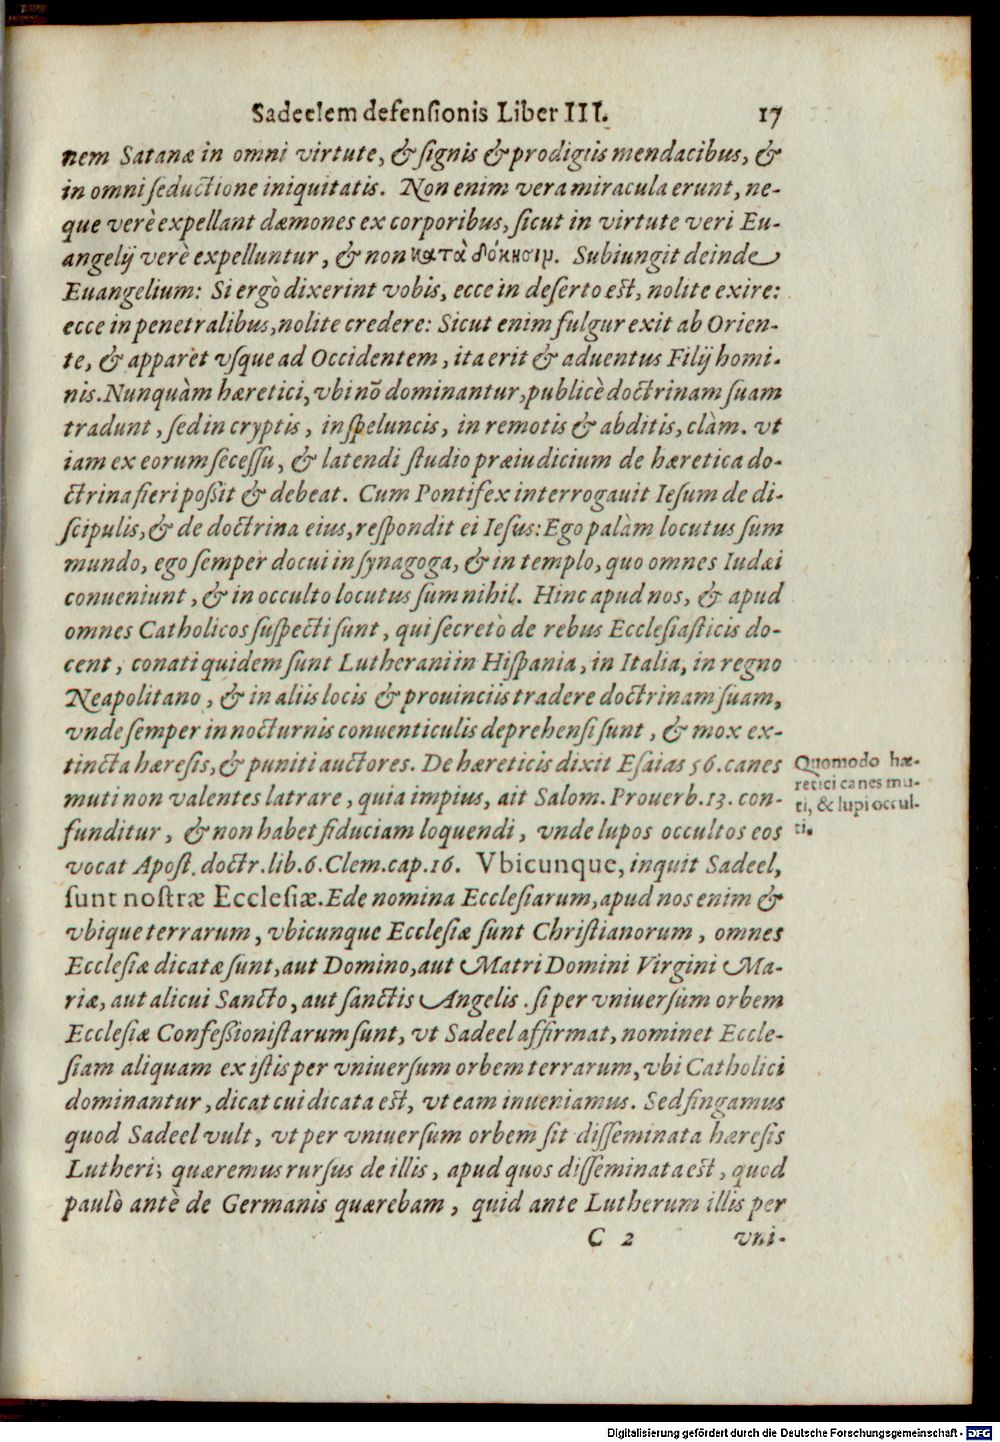 Sadeelem defensionis Liber III. 17
nem Satanæ in omni virtute, & signis & prodigiis mendacibus, &
in omni seductione iniquitatis. Non enim vera miracula erunt, ne-
que verè expellant dæmones ex corporibus, sicut in virtute veri Eu-
angelij verè expelluntur, & non κατὰ δόκησιμ. Subiungit deinde
Euangelium: Si ergò dixerint vobis, ecce in deserto est, nolite exire:
ecce in penetralibus, nolite credere: Sicut enim fulgur exit ab Orien-
te, & apparet vsque ad Occidentem, ita erit & aduentus Filij homi-
nis. Nunquàm hæretici, vbi nõ dominantur, publicè doctrinam suam
tradunt, sed in cryptis, in speluncis, in remotis & abditis, clàm. vt
iam ex eorum secessu, & latendi studio præiudicium de hæretica do-
ctrina fieri possit & debeat. Cum Pontifex interrogauit Iesum de di-
scipulis, & de doctrina eius, respondit ei Iesus: Ego palàm locutus sum
mundo, ego semper docui in synagoga, & in templo, quo omnes Iudæi
conueniunt, & in occulto locutus sum nihil. Hinc apud nos, & apud
omnes Catholicos suspecti sunt, qui secretò de rebus Ecclesiasticis do-
cent, conati quidem sunt Lutherani in Hispania, in Italia, in regno
Neapolitano, & in aliis locis & prouinciis tradere doctrinam suam,
vnde semper in nocturnis conuenticulis deprehensi sunt, & mox ex-
tincta hæresis, & puniti auctores. De hæreticis dixit Esaias 56. canes
muti non valentes latrare, quia impius, ait Salom. Prouerb. 13. con-
funditur, & non habet fiduciam loquendi, vnde lupos occultos eos
vocat Apost. doctr. lib. 6. Clem. cap. 16. Vbicunque, inquit Sadeel,
sunt nostræ Ecclesiæ. Ede nomina Ecclesiarum, apud nos enim &
vbique terrarum, vbicunque Ecclesiæ sunt Christianorum, omnes
Ecclesiæ dicatæ sunt, aut Domino, aut Matri Domini Virgini Ma-
riæ, aut alicui Sancto, aut sanctis Angelis. si per vniuersum orbem
Ecclesiæ Confessionistarum sunt, vt Sadeel affirmat, nominet Eccle-
siam aliquam ex istis per vniuersum orbem terrarum, vbi Catholici
dominantur, dicat cui dicata est, vt eam inueniamus. Sed fingamus
quod Sadeel vult, vt per vniuersum orbem sit disseminata hæresis
Lutheri; quæremus rursus de illis, apud quos disseminata est, quod
paulò antè de Germanis quærebam, quid ante Lutherum illis per
C 2 vni-
Quomodo hæ-
retici canes mu-
ti, & lupi occul-
ti.
Digitalisierung gefördert durch die Deutsche Forschungsgemeinschaft - DFG